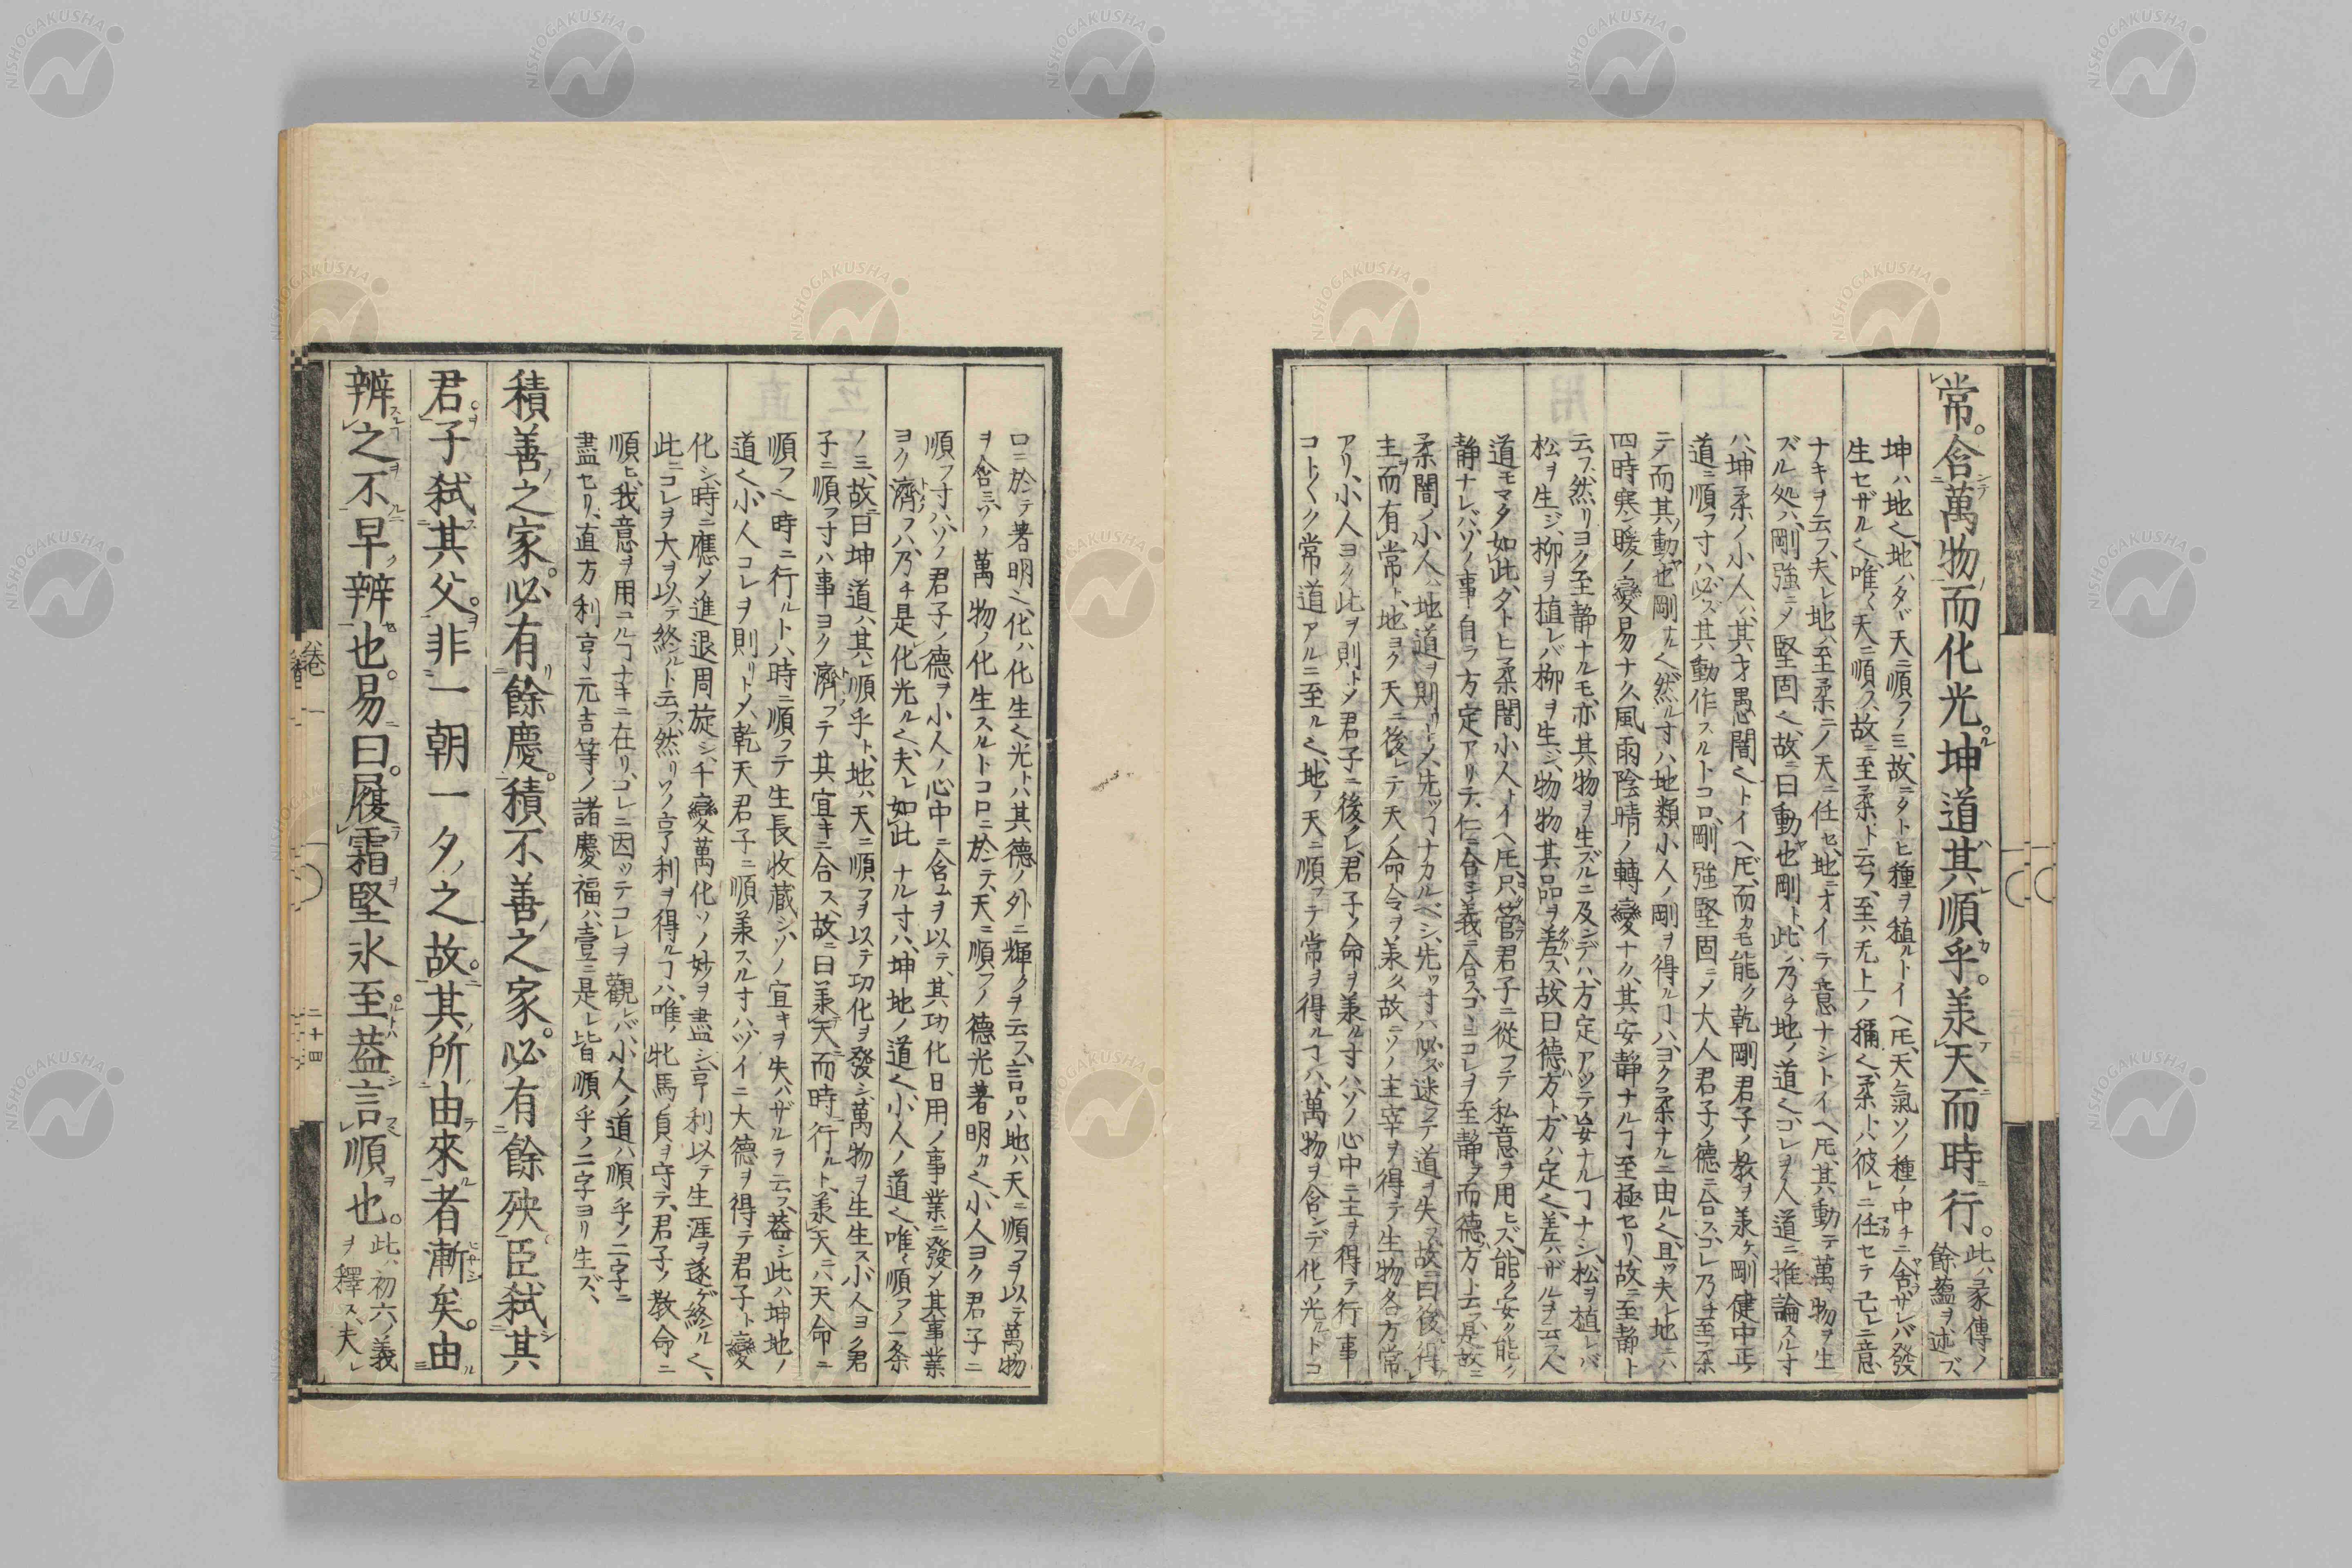 常。含萬物而化光。坤道其順乎。承天而時行。此ハ彖傳ノ
餘蘊ヲ述ズ
坤ハ地也、地ハタヾ天ニ順フノミ、故ニタトヒ種ヲ植ルトイヘ𪜈、天氣ソノ種ノ中チニ舎サレバ發
生セザル也、唯〻天ニ順フ、故ニ至柔ト云フ、至ハ无上ノ稱也、柔トハ彼レニ任セテ己レニ意
ナキヲ云フ、夫レ地ハ至柔ニノ天ニ任セ、地ニオイテ意ナシトイヘ𪜈、其動テ萬物ヲ生
ズル処ハ、剛強ニメ堅固也、故ニ曰動也剛ト、此ハ乃チ地ノ道也、コレヲ人道ニ推論スル寸
ハ、坤柔ノ小人ハ、其才愚闇也トイヘ𪜈、而カモ能ク乾剛君子ノ教ヲ承ケ、剛健中正ノ
道ニ順フ寸ハ必ズ其動作スルトコロ、剛強堅固ニメ大人君子ノ德ニ合ス、コレ乃チ至柔
ニテ而其動也剛ナル也、然ル寸ハ地類小人ノ剛ヲ得ルヿハ、ヨク柔ナルニ由ル也、且ツ夫レ地ニハ
四時寒暖ノ變易ナク、風雨陰晴ノ轉變ナク、其安静ナルヿ至極セリ、故ニ至静ト
云フ、然リヨク至静ナルモ、亦其物ヲ生ズルニ及ンデハ、方定アツテ妄ナルヿナシ、松ヲ植レバ
松ヲ生ジ、柳ヲ植レバ柳ヲ生ジ、物物其品ヲ差ス、故曰德方ト、方ハ定也、差ハザルヲ云フ、人
道モマタ如此、タトヒ柔闇小人トイヘ𪜈、只管君子ニ從フテ私意ヲ用ヒズ、能ク安ク能ク
静ナレバ、ソノ事自ラ方定アリテ、仁ニ合シ義ニ合ス、コヽニコレヲ至静ヲ而德方ト云フ、是故ニ
柔闇ノ小人ハ、地道ヲ則リトメ、先ツヿナカルベシ、先ツ寸ハ必ズ迷フテ道ヲ失フ、故ニ曰後得
主而有常ト、地ヨク天ニ後レテ天ノ命令ヲ承ク、故ニソノ主宰ヲ得テ生物各方常
アリ、小人ヨク此ヲ則トメ君子ニ後クレ、君子ノ命ヲ承ル寸ハ、ソノ心中ニ主ヲ得テ行事
コト〱ク常道アルニ至ル也、地ノ天ニ順フテ常ヲ得ルヿハ、萬物ヲ含ンデ化ノ光ルトコ
ロニ於テ著明也、化ハ化生也、光トハ其德ノ外ニ輝クヲ云フ、言ロハ地ハ天ニ順フヲ以テ萬物
ヲ含ミ、ソノ萬物ノ化生スルトコロニ於ンテ、天ニ順フノ德光著明カ也、小人ヨク君子ニ
順フ寸ハ、ソノ君子ノ德ヲ小人ノ心中ニ含ムヲ以テ、其功化日用ノ事業ニ發メ其事業
ヨク濟フハ、乃チ是化光ル也、夫レ如此ナル寸ハ、坤地ノ道也、小人ノ道也、唯〻順フノ一条
ノミ、故曰坤道ハ其レ順乎ト、地ハ天ニ順フヲ以テ功化ヲ發シ、萬物ヲ生生ス、小人ヨク君
子ニ順フ寸ハ事ヨク濟フテ其宜キニ合ス、故ニ曰承天而時行ルト、承天ニハ天命ニ
順フ也、時ニ行ルトハ、時ニ順フテ生長收藏シ、ソノ宜キヲ失ハザルヲ云フ、葢シ此ハ坤地ノ
道也、小人コレヲ則リトメ、乾天君子ニ順承スル寸ハ、ツイニ大德ヲ得テ君子ト變
化シ、時ニ應メ進退周旋シ、千變萬化ソノ妙ヲ盡シ、亨利以テ生涯ヲ遂ゲ終ル也、
此ニコレヲ大ヲ以テ終ルト云フ、然リソノ亨利ヲ得ルヿハ、唯ノ牝馬貞ヲ守テ、君子ノ教命ニ
順ヒ、我意ヲ用コルヿナキニ在リ、コレニ因ツテコレヲ觀レバ、小人ノ道ハ順乎ノ二字ニ
盡セリ、直方利亨元吉等ノ諸慶福ハ、壹ニ是レ皆順乎ノ二字ヨリ生ズ、
積善之家。必有餘慶。積不善之家。必有餘殃。臣弑其
君。子弑其父。非一朝一夕之故。其所由來者漸矣。由
辨之不早辨也。易曰。履霜堅氷至。葢言順也。此ハ初六ノ義
ヲ釋ス、夫レ
卷一
二十四